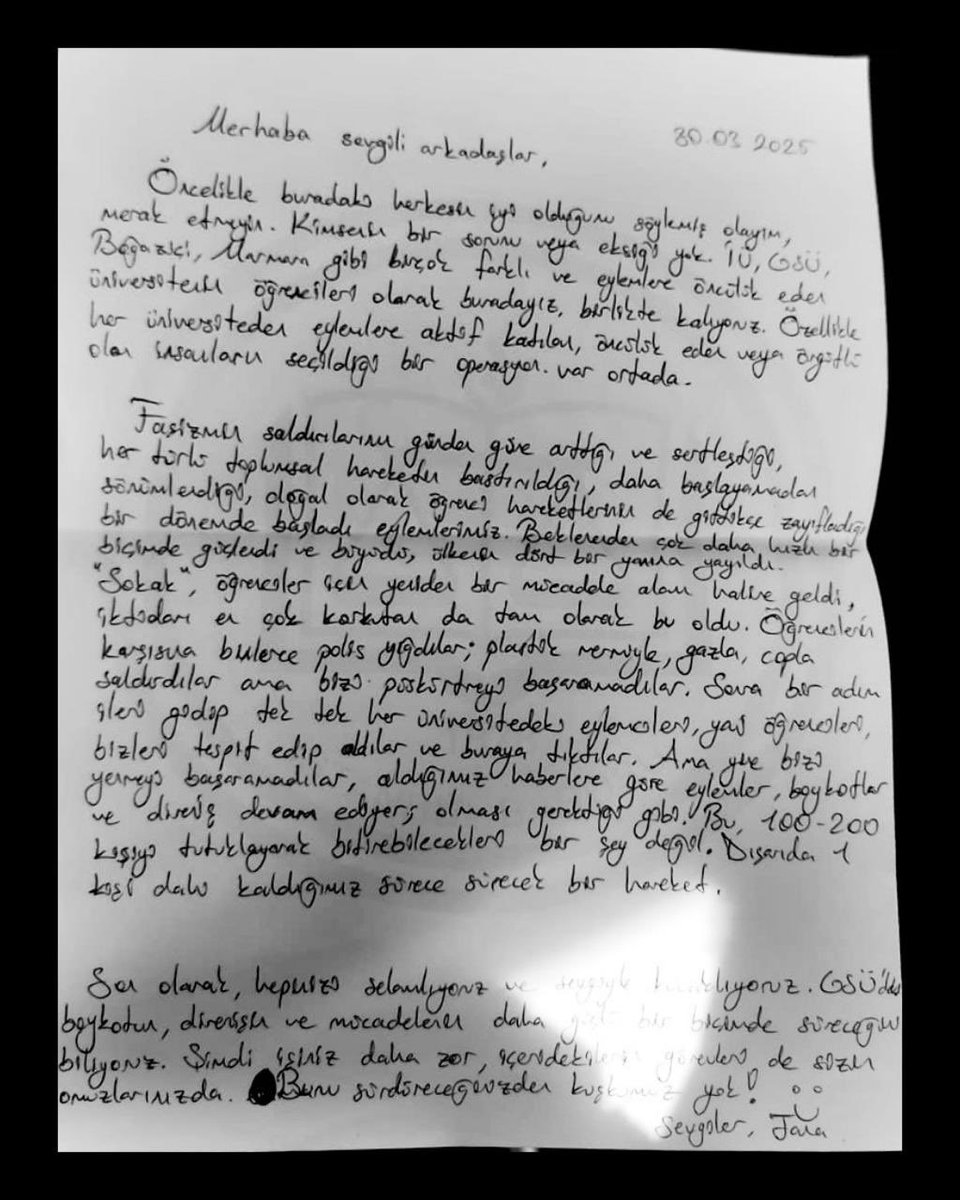 Merhaba sevgili arkadaşlar,
30.03.2025
Öncelikle buradaki herkesin iyi olduğunu söylemiş olayım,
merak etmeyin. Kimsenin bir sorunu veya eksiği yok. İÜ, GSÜ,
Boğaziçi, Marmara gibi birçok farklı ve eylemlere öncülük eden
üniversitenin öğrencileri olarak buradayız, birlikte kalıyoruz. Özellikle
her üniversiteden eylemlere aktif katılan, öncülük eden veya örgütlü
olan insanların seçildiği bir operasyon var ortada.
Faşizmin saldırılarının günden güne arttığı ve sertleştiği,
her türlü toplumsal hareketin bastırıldığı, daha başlayamadan
sönümlendiği, doğal olarak öğrenci hareketlerinin de gittikçe zayıfladığı
bir dönemde başladı eylemlerimiz. Beklenenden çok daha hızlı bir
biçimde güçlendi ve büyüdü, ülkenin dört bir yanına yayıldı.
"Sokak", öğrenciler için yeniden bir mücadele alanı haline geldi,
iktidarı en çok korkutan da tam olarak bu oldu. Öğrencilerin
karşısına binlerce polis yığdılar; plastik mermiyle, gazla, copla
saldırdılar ama bizi püskürtmeyi başaramadılar. Sonra bir adım
ileri gidip tek tek her üniversitedeki eylemcileri, yani öğrencileri,
bizleri tespit edip aldılar ve buraya tıktılar. Ama yine bizi
yenmeyi başaramadılar, aldığımız haberlere göre eylemler, boykotlar
ve direniş devam ediyor; olması gerektiği gibi. Bu, 100-200
kişiyi tutuklayarak bitirebilecekleri bir şey değil. Dışarıda 1
kişi dahi kaldığımız sürece sürecek bir hareket.
Son olarak, hepinizi selamlıyoruz ve sevgiyle kucaklıyoruz. GSÜ'deki
boykotun, direnişin ve mücadelenin daha güçlü bir biçimde süreceğini
biliyoruz. Şimdi işiniz daha zor, içeridekilerin görevleri de sizin
omuzlarınızda. Bunu sürdüreceğinizden kuşkumuz yok!
Sevgiler,